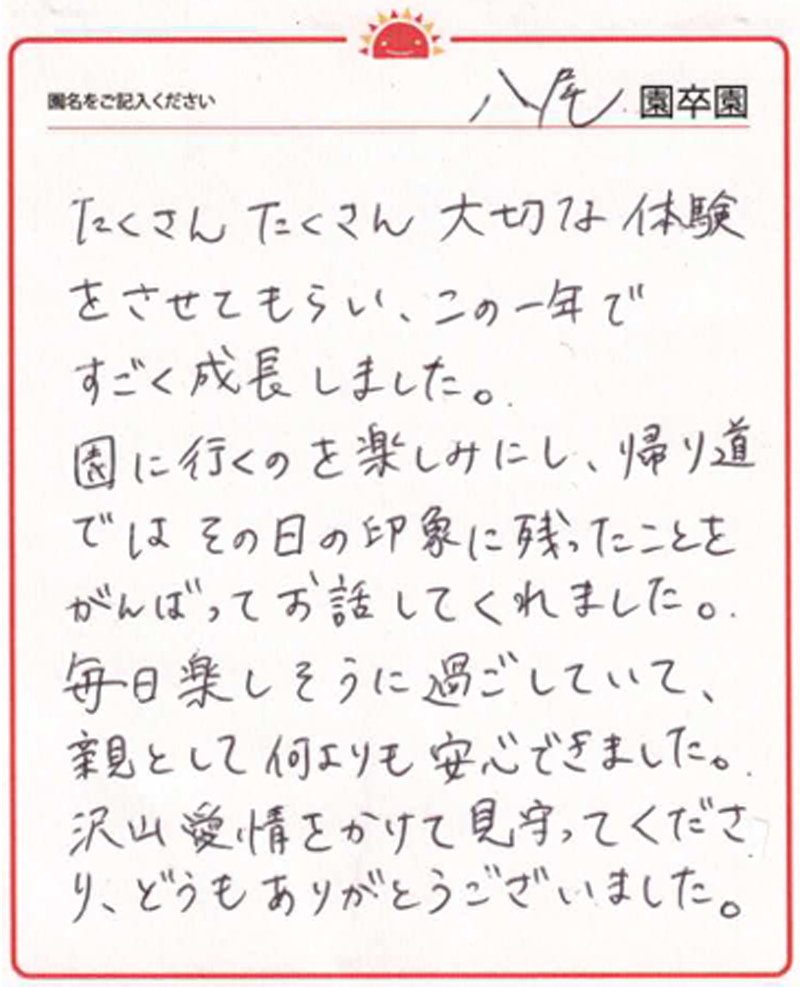 園名をご記入ください
八尾 園卒園
たくさん たくさん 大切な 体験
をさせてもらい、この一年で
すごく成長しました。
園に行くのを楽しみにし、帰り道
では その日の印象に残ったことを
がんばってお話してくれました。
毎日楽しそうに過ごしていて、
親として何よりも安心できました。
沢山愛情をかけて見守ってくださ
り、どうもありがとうございました。